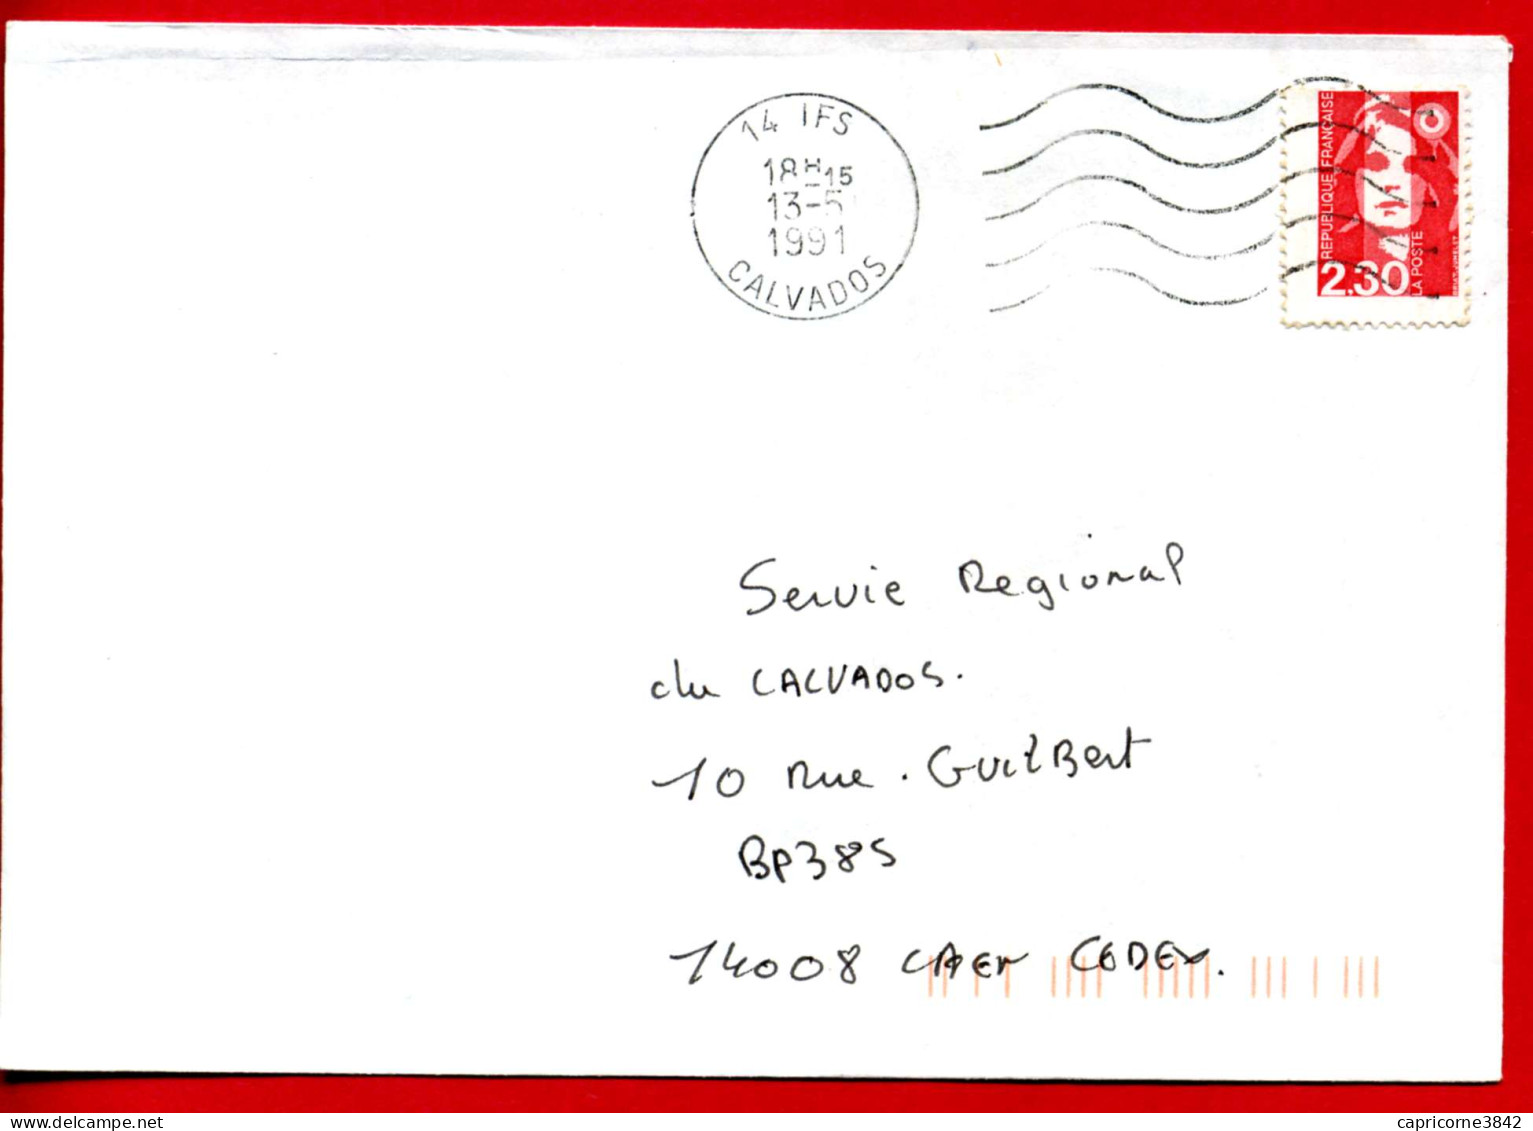 14 IFS
18H15
13-5
1991
CALVADOS
REPUBLIQUE FRANÇAISE
2,30
LA POSTE
Servie Regional
du CALVADOS.
10 Rue. GuilBert
BP385
14008 CAEN CEDEX.
capricorne3842